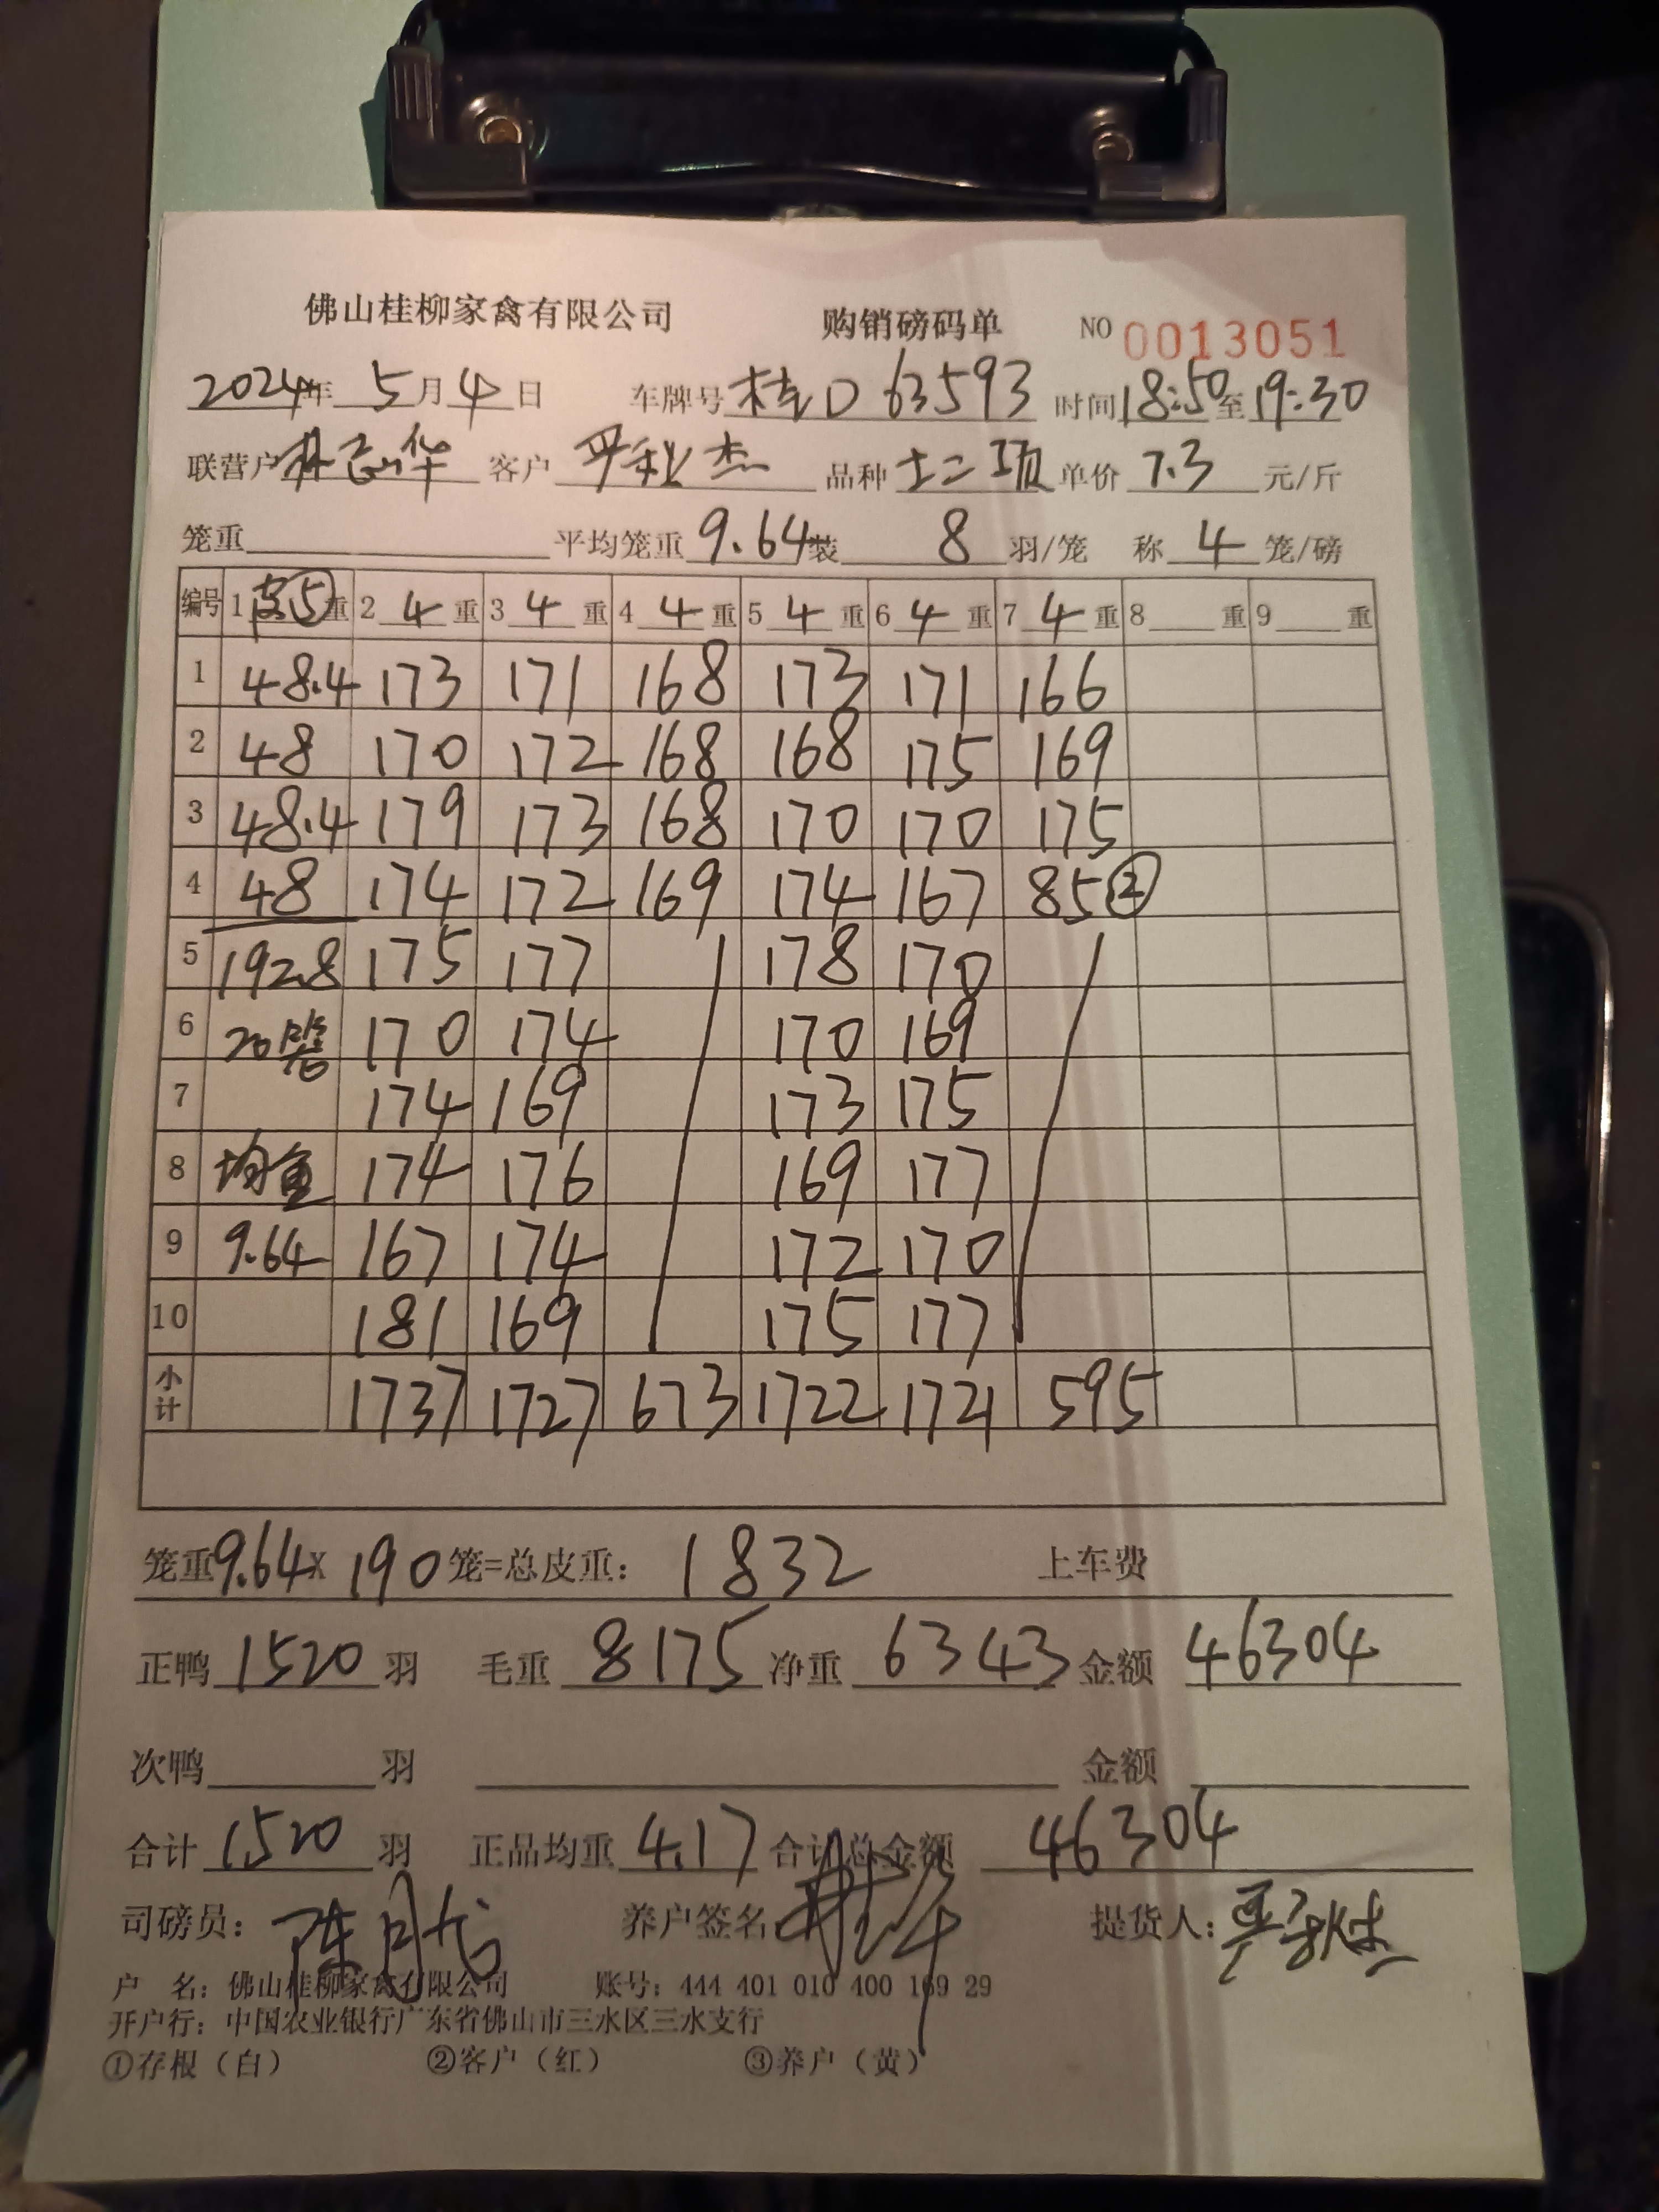 佛山桂柳家禽有限公司 购销磅码单 NO 0013051
2024年 5 月 4 日 车牌号 桂D 63593 时间 18:50 至 19:30
联营户 林志华 客户 严秋杰 品种 土二项 单价 7.3 元/斤
笼重 平均笼重 9.64 装 8 羽/笼 称 4 笼/磅
编号 1 皮⑤ 重 2 4 重 3 4 重 4 4 重 5 4 重 6 4 重 7 4 重 8 重 9 重
1 48.4 173 171 168 173 171 166
2 48 170 172 168 168 175 169
3 48.4 179 173 168 170 170 175
4 48 174 172 169 174 167 85②
5 192.8 175 177 178 170
6 20笼 170 174 170 169
7 174 169 173 175
8 均重 174 176 169 177
9 9.64 167 174 172 170
10 181 169 175 177
小计 1737 1727 673 1722 1721 595
笼重 9.64 X 190 笼=总皮重: 1832 上车费
正鸭 1520 羽 毛重 8175 净重 6343 金额 46304
次鸭 羽 金额
合计 1520 羽 正品均重 4.17 合计总金额 46304
司磅员: 养户签名 提货人: 严秋杰
户 名: 佛山桂柳家禽有限公司 账号: 444 401 010 400 169 29
开户行: 中国农业银行广东省佛山市三水区三水支行
①存根(白) ②客户(红) ③养户(黄)